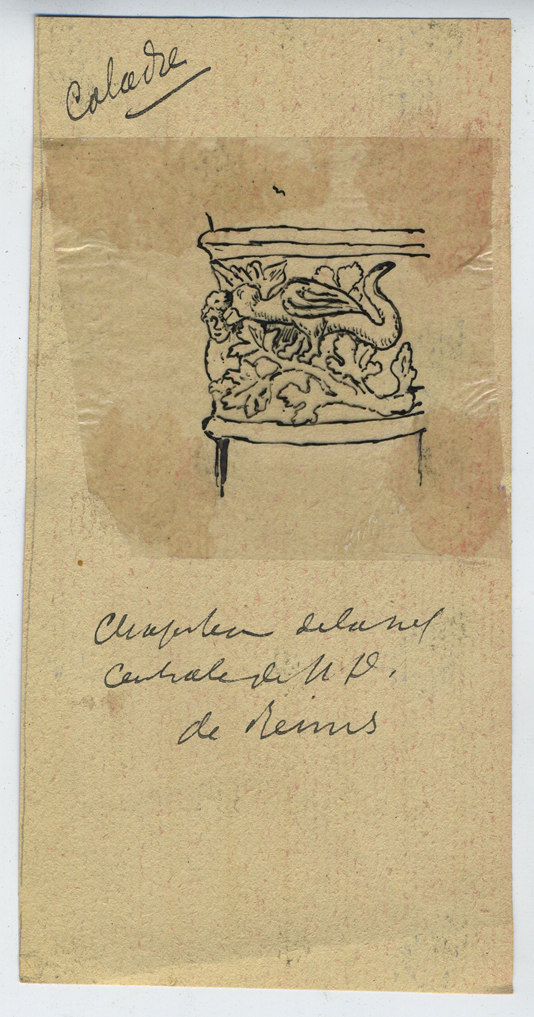 Caladre
Chapiteau de la nef
Centrale de N. D.
de Reims